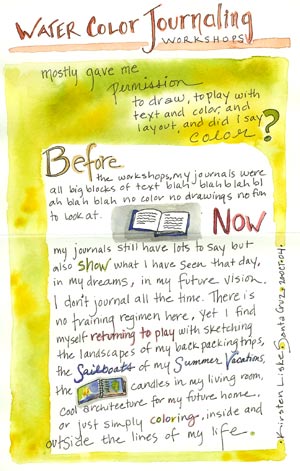 WATER COLOR JOURNALING
WORKSHOPS
mostly gave me
permission
to draw, to play with
text and color, and
layout, and did I say
COLOR?
Before
the workshops, my journals were
all big blocks of text blah blah blah bl
ah blah blah no color no drawings no fun
to look at.
NOW
my journals still have lots to say but
also show what I have seen that day,
in my dreams, in my future vision.
I don't journal all the time. There is
no training regimen here, yet I find
myself returning to play with sketching
the landscapes of my backpacking trips,
the Sailboats of my Summer Vacations,
the candles in my living room,
cool architecture for my future home.
or just simply coloring, inside and
outside the lines of my life.
Kirsten Liske. Santa Cruz.